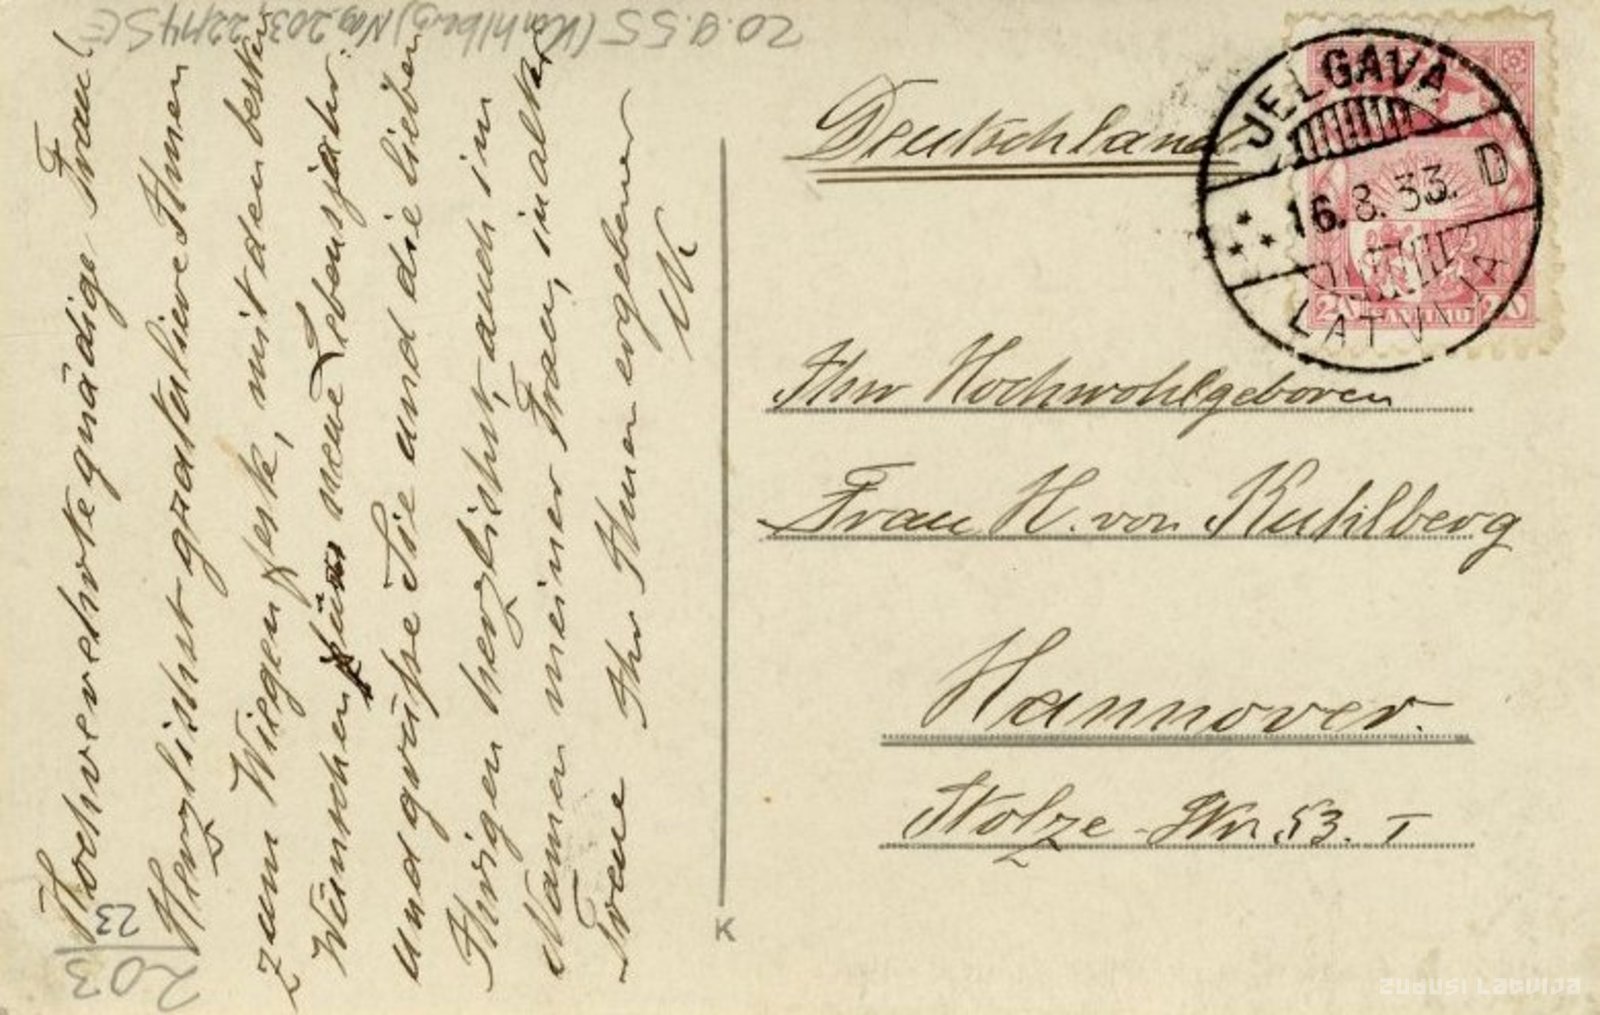 20.9.55 (Kuhlberg) Nag. 203, 22/74 S
Hochverehrte gnädige Frau!
Herzlichst gratuliere Ihnen
zum Wiegenfeste, mit den besten
Wünschen fürs neue Lebensjahr.
und grüße Sie und die lieben
Ihrigen herzlichst, auch im
Namen meiner Frau, in alter
Treue Ihr Ihnen ergebener
203
23
Deutschland
JELGAVA
16.8.33. D
LATVIJA
20 LATVIJA 20
Ihr Hochwohlgeboren
Frau H. von Kuhlberg
Hannover.
Stolze-Str. 53. I
K
zudusi Latvija